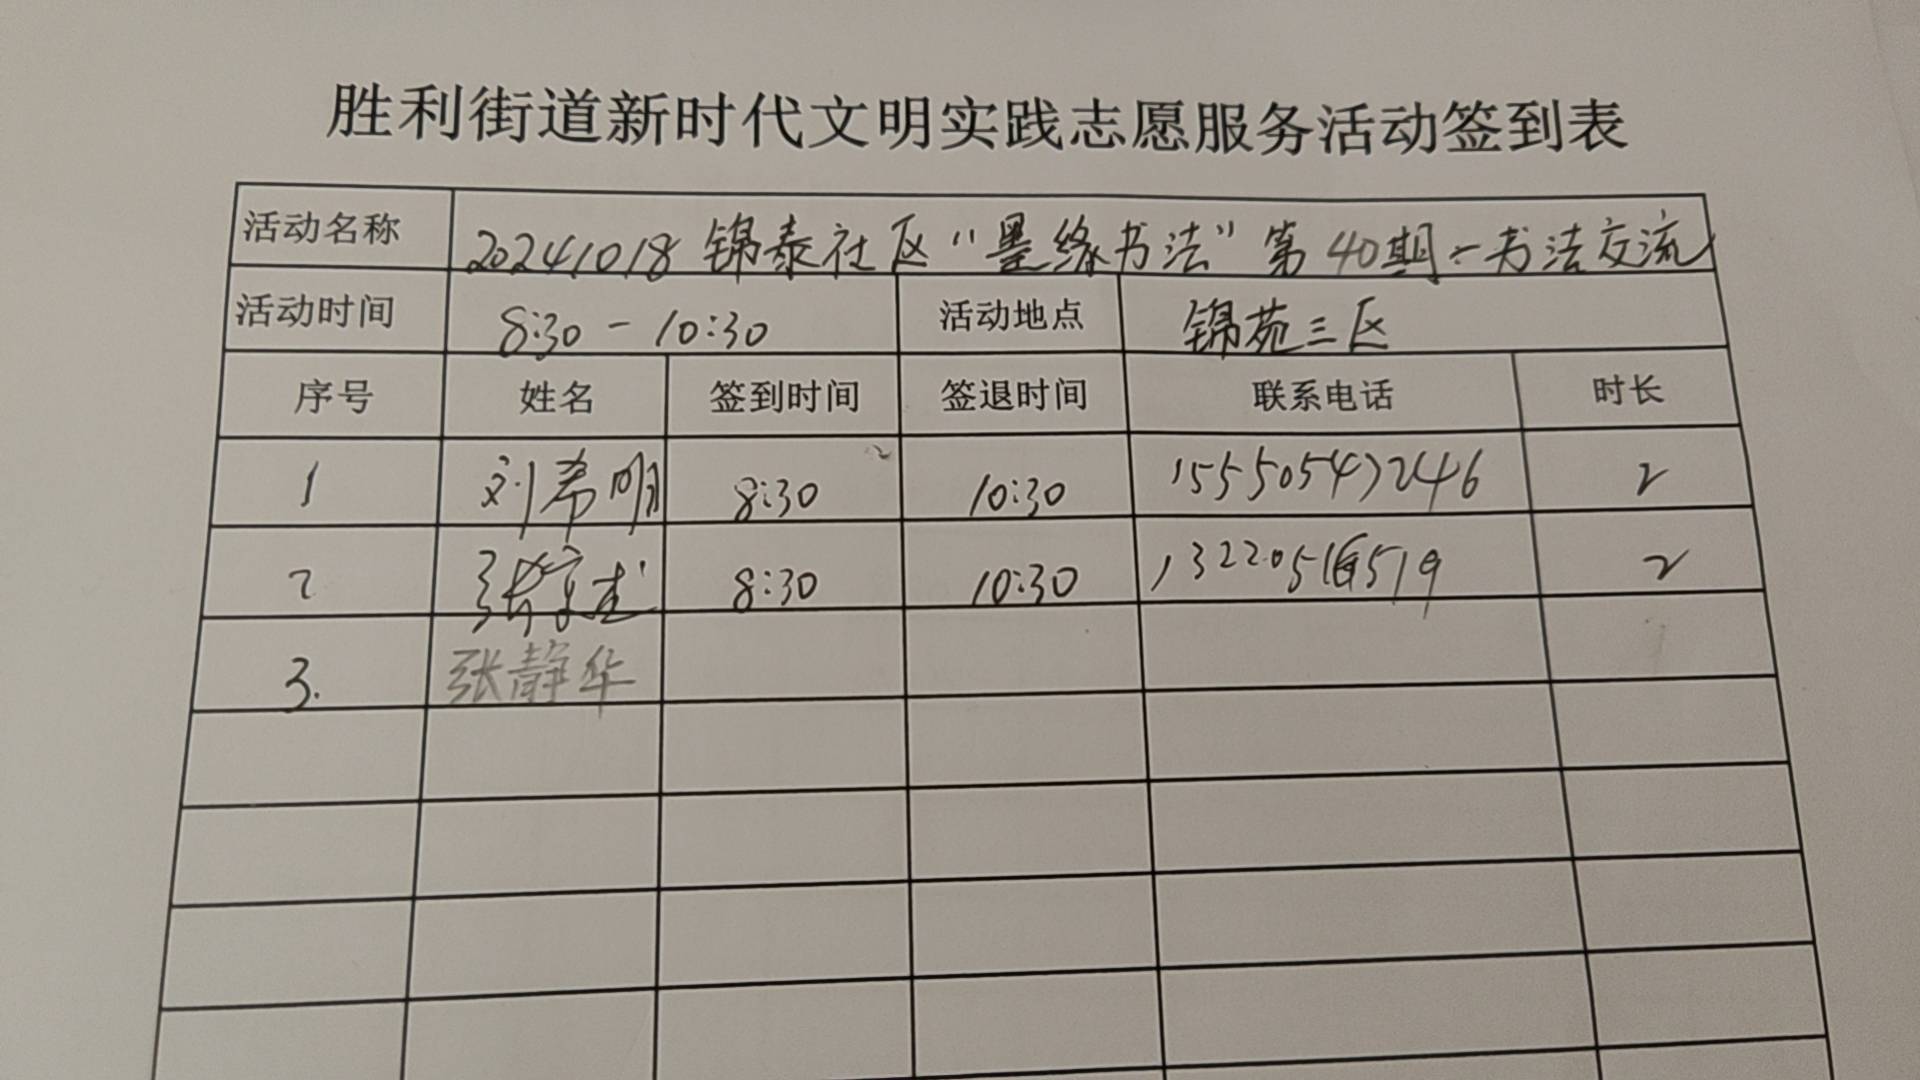 胜利街道新时代文明实践志愿服务活动签到表
活动名称 20241018 锦泰社区“墨缘书法”第40期--书法交流
活动时间 8:30 - 10:30 活动地点 锦苑三区
序号 姓名 签到时间 签退时间 联系电话 时长
1 刘希明 8:30 10:30 15550547246 2
2 8:30 10:30 2
3. 张静华